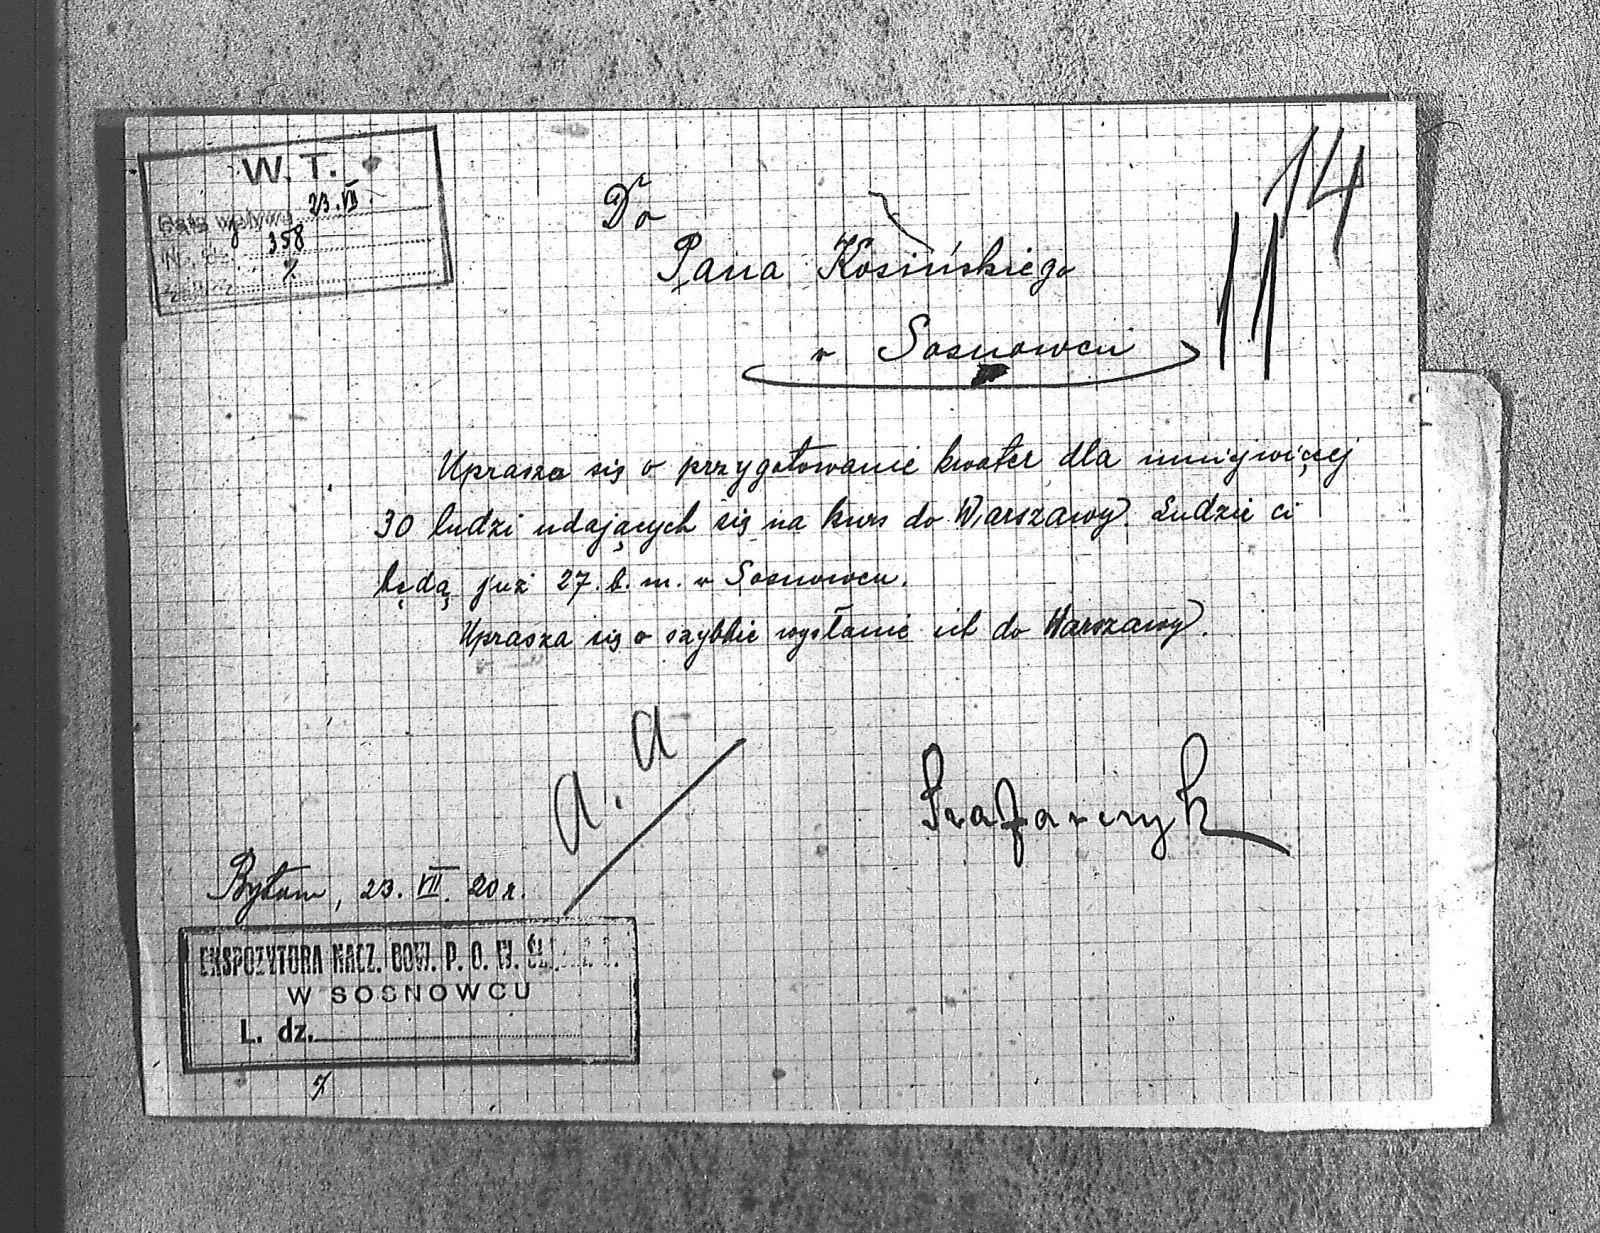 W. T.
Data wpływu 23. VII.
Nr. dz. 358
14
11
Do
Pana Kosińskiego
w Sosnowcu
Uprasza się o przygotowanie kwater dla mniejwięcej
30 ludzi udających się na kurs do Warszawy. Ludzie ci
będą już 27. b. m. w Sosnowcu.
Uprasza się o szybkie wysłanie ich do Warszawy.
a. a
Szafarczyk
Bytom, 23. VII. 20 r.
EKSPOZYTURA NACZ. DOW. P. O. W. ŚL.
W SOSNOWCU
L. dz.